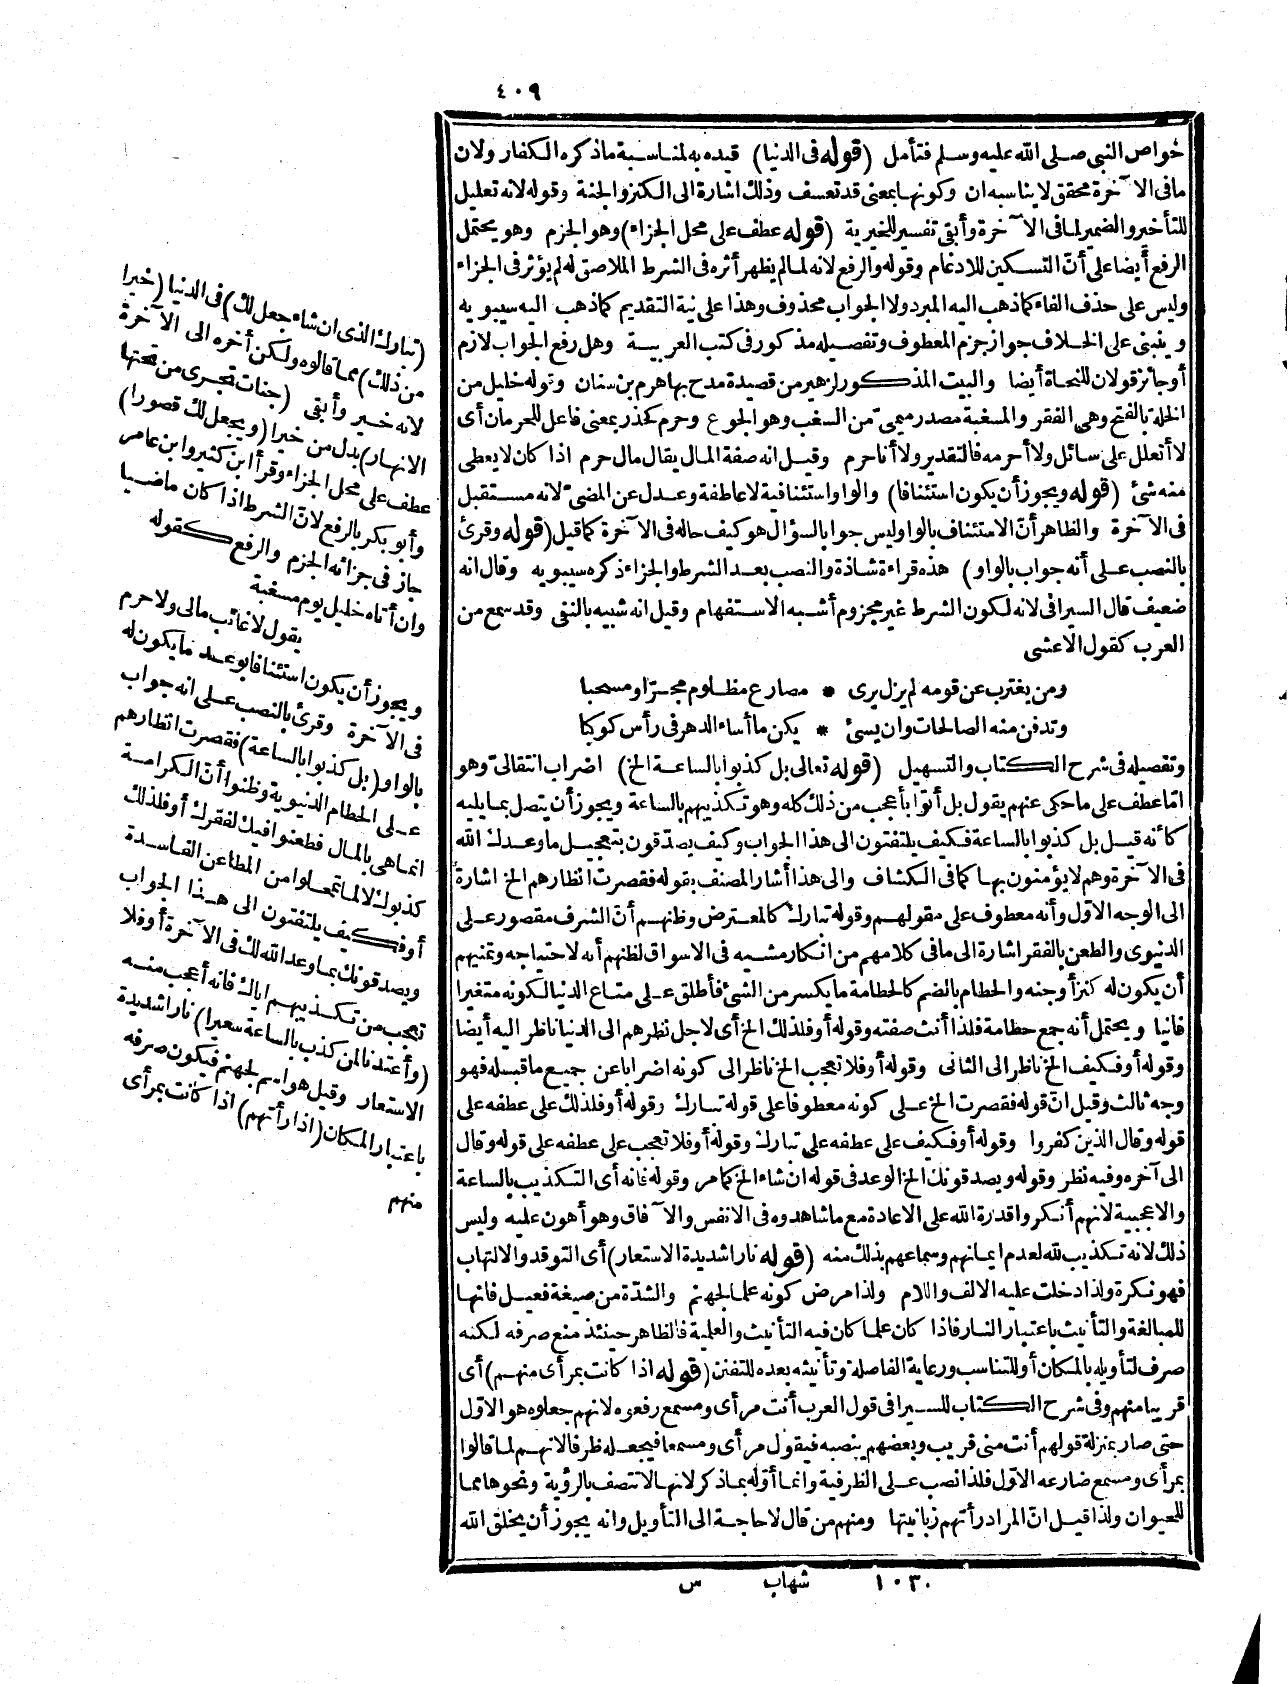 ٤٠٩
خواص النبى صلى الله عليه وسلم فتأمل (قوله فى الدنيا) قيده به لمناسبة ماذكره الكفار ولان
مافى الآخرة محقق لا يناسبه ان وكونها بمعنى قد تعسف وذلك اشارة الى الكنز والجنة وقوله لانه تعليل
للتأخير والضمير لما فى الآخرة وأبقى تفسير للخيرية (قوله عطف على محل الجزاء) وهو الجزم وهو يحتمل
الرفع أيضا على أنّ التسكين للادغام وقوله والرفع لانه لما لم يظهر أثره فى الشرط الملاصق له لم يؤثر فى الجزاء
وليس على حذف الفاء كما ذهب اليه المبرد ولا الجواب محذوف وهذا على نية التقديم كما ذهب اليه سيبويه
وينبنى على الخلاف جواز جزم المعطوف وتفصيله مذكور فى كتب العربية وهل رفع الجواب لازم
أو جائز قولان للنحاة أيضا والبيت المذكور لزهير من قصيدة مدح بها هرم بن سنان وقوله خليل من
الخلة بالفتح وهى الفقر والمسغبة مصدر ميمىّ من السغب وهو الجوع وحرم كحذر بمعنى فاعل للحرمان أى
لا أتعلل على سائل ولا أحرمه فالتقدير ولا أنا حرم وقيل انه صفة المال يقال مال حرم اذا كان لا يعطى
منه شئ (قوله ويجوز أن يكون استئنافا) والواو استئنافية لا عاطفة وعدل عن المضىّ لانه مستقبل
فى الآخرة والظاهر أنّ الاستئناف بالواو وليس جوابا لسؤال هو كيف حاله فى الآخرة كما قيل (قوله وقرئ
بالنصب على أنه جواب بالواو) هذه قراءة شاذة والنصب بعد الشرط والجزاء ذكره سيبويه وقال انه
ضعيف قال السيرافى لانه لكون الشرط غير مجزوم أشبه الاستفهام وقيل انه شبيه بالنفى وقد سمع من
العرب كقول الاعشى
ومن يغترب عن قومه لم يزل يرى * مصارع مظلوم مجرّا ومسحبا
وتدفن منه الصالحات وان يسئ * يكن ما أساء الدهر فى رأس كوكبا
وتفصيله فى شرح الكتاب والتسهيل (قوله تعالى بل كذبوا بالساعة الخ) اضراب انتقالىّ وهو
امّا عطف على ما حكى عنهم يقول بل أتوا بأعجب من ذلك كله وهو تكذيبهم بالساعة ويجوز أن يتصل بما يليه
كأنه قيل بل كذبوا بالساعة فكيف يلتفتون الى هذا الجواب وكيف يصدّقون بتعجيل ما وعدك الله
فى الآخرة وهم لا يؤمنون بها كما فى الكشاف والى هذا أشار المصنف بقوله فقصرت انظارهم الخ اشارة
الى الوجه الاوّل وأنه معطوف على مقولهم وقوله تبارك كالمعترض وظنهم أنّ الشرف مقصور على
الدنيوى والطعن بالفقر اشارة الى ما فى كلامهم من انكار مشيه فى الاسواق لظنهم أنه لاحتياجه وتمنيهم
أن يكون له كنز أو جنه والحطام بالضم كالحطامة ما يكسر من الشئ فأطلق على متاع الدنيا لكونه متغيرا
فانيا ويحتمل أنه جمع حطامة فلذا أنث صفته وقوله أو فلذلك الخ أى لاجل نظرهم الى الدنيا ناظر اليه أيضا
وقوله أو فكيف الخ ناظر الى الثانى وقوله أو فلا تعجب الخ ناظر الى كونه اضرابا عن جميع ما قبله فهو
وجه ثالث وقيل انّ قوله فقصرت الخ على كونه معطوفا على قوله تبارك وقوله أو فلذلك على عطفه على
قوله وقال الذين كفروا وقوله أو فكيف على عطفه على تبارك وقوله أو فلا تعجب على عطفه على قوله وقال
الى آخره وفيه نظر وقوله ويصدقونك الخ الوعد فى قوله ان شاء الخ كما مر وقوله فانه أى التكذيب بالساعة
والاعجبية لانهم أنكروا قدرة الله على الاعادة مع ما شاهدوه فى الانفس والآفاق وهو أهون عليه وليس
ذلك لانه تكذيب لله لعدم ايمانهم وسماعهم بذلك منه (قوله نارا شديدة الاستعار) أى التوقد والالتهاب
فهو نكرة ولذا دخلت عليه الالف واللام ولذا مرض كونه علما لجهنم والشدّة من صيغة فعيل فانها
للمبالغة والتأنيث باعتبار النار فاذا كان علما كان فيه التأنيث والعلمية فالظاهر حينئذ منع صرفه لكنه
صرف لتأويله بالمكان أو للتناسب ورعاية الفاصلة وتأنيثه بعده للتفنن (قوله اذا كانت بمرأى منهم) أى
قريبا منهم وفى شرح الكتاب للسيرافى قول العرب أنت مرأى ومسمع رفعوه لانهم جعلوه هو الاوّل
حتى صار بمنزلة قولهم أنت منى قريب وبعضهم ينصبه فيقول مرأى ومسمعا فيجعله ظرفا لانهم لما قالوا
بمرأى ومسمع ضارعه الاوّل فلذا نصب على الظرفية وانما أوّله بماذكر لانها لا تتصف بالرؤية ونحوها مما
للحيوان ولذا قيل انّ المراد رأتهم زبانيتها ومنهم من قال لا حاجة الى التأويل وانه يجوز أن يخلق الله
(تبارك الذى ان شاء جعل لك) فى الدنيا (خيرا
من ذلك) مما قالوه ولكن أخره الى الآخرة
لانه خير وأبقى (جنات تجرى من تحتها
الانهار) بدل من خيرا (ويجعل لك قصورا)
عطف على محل الجزاء وقرأ ابن كثير وابن عامر
وأبو بكر بالرفع لانّ الشرط اذا كان ماضيا
جاز فى جزائه الجزم والرفع كقوله
وان أتاه خليل يوم مسغبة
يقول لا غائب مالى ولا حرم
ويجوز أن يكون استئنافا بوعد ما يكون له
فى الآخرة وقرئ بالنصب على انه جواب
بالواو (بل كذبوا بالساعة) فقصرت انظارهم
على الحطام الدنيوية وظنوا أنّ الكرامة
انما هى بالمال فطعنوا فيك لفقرك أو فلذلك
كذبوك لا لما تمحلوا من المطاعن الفاسدة
أو فكيف يلتفتون الى هذا الجواب
ويصدقونك بما وعد الله لك فى الآخرة أو فلا
تعجب من تكذيبهم اياك فانه أعجب منه
(وأعتدنا لمن كذب بالساعة سعيرا) نارا شديدة
الاستعار وقيل هو اسم لجهنم فيكون صرفه
باعتبار المكان (اذا رأتهم) اذا كانت بمرأى
منهم
١٠٣ شهاب س